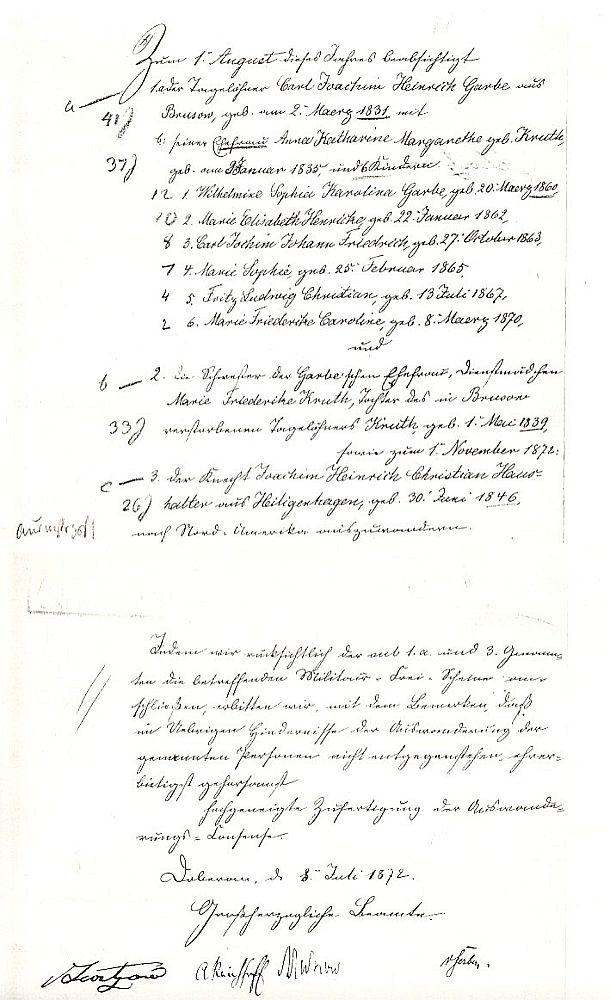 Zum 1. August dieses Jahres beabsichtigt
a — 1. a. der Tagelöhner Carl Joachim Heinrich Garbe aus
41) Brusow, geb. am 2. Maerz 1831 mit
b. seiner Ehefrau Anna Katharine Margarethe geb. Kruth,
37) geb. am Januar 1835, und 6 Kindern
12 1. Wilhelmine Sophia Karolina Garbe, geb. 20. Maerz 1860,
10 2. Marie Elisabeth Henricke, geb. 22. Januar 1862,
8 3. Carl Jochim Johann Friedrich, geb. 27. October 1863,
7 4. Marie Sophie, geb. 25. Februar 1865,
4 5. Fritz Ludwig Christian, geb. 13 Juli 1867,
2 6. Marie Friederike Caroline, geb. 8. Maerz 1870,
und
b — 2. die Schwester der Garbe'schen Ehefrau, Dienstmädchen
Marie Friederike Kruth, Tochter des in Brusow
33) verstorbenen Tagelöhners Kruth, geb. 1. Mai 1839,
sowie zum 1. November 1872:
c — 3. der Knecht Joachim Heinrich Christian Haus-
26) halter aus Heiligenhagen, geb. 30. Juni 1846,
nach Nord-Amerika auszuwandern.
Indem wir rücksichtlich der sub 1. a. und 3. Genann-
ten die betreffenden Militair-Frei-Scheine an-
schließen, erbitten wir, mit dem Bemerken, daß
im Uebrigen Hindernisse der Auswanderung der
genannten Personen nicht entgegenstehen, ehrer-
bietigst gehorsamst
hochgeneigte Zufertigung der Auswande-
rungs-Consense.
Doberan, d. 8. Juli 1872.
Großherzogliche Beamte.